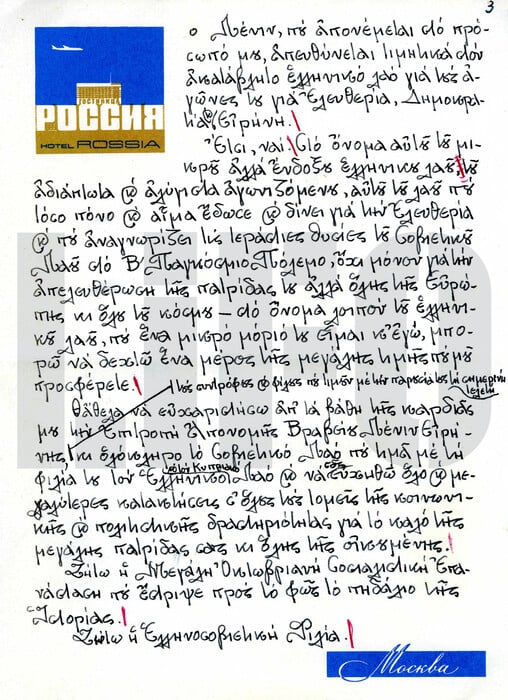 3
ΡΟССИЯ
ГОСТИНИЦА
HOTEL ROSSIA
ὁ Λένιν, πού ἀπονέμεται στό πρό-
σωπό μου, ἀπευθύνεται τιμητικά στόν
ἀκατάβλητο ἑλληνικό λαό γιά τούς ἀ-
γῶνες του γιά Ἐλευθερία, Δημοκρα-
τία, Εἰρήνη.
Ἔτσι, ναί. Στό ὄνομα αὐτοῦ τοῦ μι-
κροῦ ἀλλά ἔνδοξου ἑλληνικοῦ λαοῦ, τοῦ
ἀδιάπτωτα καί ἀλύγιστα ἀγωνιζόμενου, αὐτοῦ τοῦ λαοῦ πού
τόσο πόνο καί αἷμα ἔδωσε καί δίνει γιά τήν Ἐλευθερία
καί πού ἀναγνωρίζει τίς τεράστιες θυσίες τοῦ Σοβιετικοῦ
Λαοῦ στό Β' Παγκόσμιο Πόλεμο, ὄχι μόνον γιά τήν
ἀπελευθέρωση τῆς πατρίδας του ἀλλά ὅλης τῆς Εὐρώ-
πης κι ὅλου τοῦ κόσμου — στό ὄνομα λοιπόν τοῦ ἑλληνι-
κοῦ λαοῦ, πού ἕνα μικρό μόριό του εἶμαι κ' ἐγώ, μπο-
ρῶ νά δεχτῶ ἕνα μέρος τῆς μεγάλης τιμῆς πού μοῦ
προσφέρετε.
τούς συντρόφους καί φίλους πού τιμοῦν μέ τήν παρουσία τους τή σημερινή
τελετή
Θἄθελα νά εὐχαριστήσω ἀπ' τά βάθη τῆς καρδιᾶς
μου τήν Ἐπιτροπή Ἀπονομῆς Βραβείου Λένιν Εἰρή-
νης, κι ὁλόκληρο τό Σοβιετικό Λαό πού τιμᾶ μέ τή
φιλία του τόν Ἑλληνικό καί τόν Κυπριακό Λαό καί νά σᾶς εὐχηθῶ ὅλο καί με-
γαλύτερες κατακτήσεις σ' ὅλους τούς τομεῖς τῆς κοινωνι-
κῆς καί πολιτιστικῆς δραστηριότητας γιά τό καλό τῆς
μεγάλης πατρίδας σας κι ὅλης τῆς οἰκουμένης.
Ζήτω ἡ Μεγάλη Ὀκτωβριανή Σοσιαλιστική Ἐπα-
νάσταση πού ἔστριψε πρός τό φῶς τό πηδάλιο τῆς
Ἱστορίας.
Ζήτω ἡ Ἑλληνοσοβιετική Φιλία.
Москва
LIFO